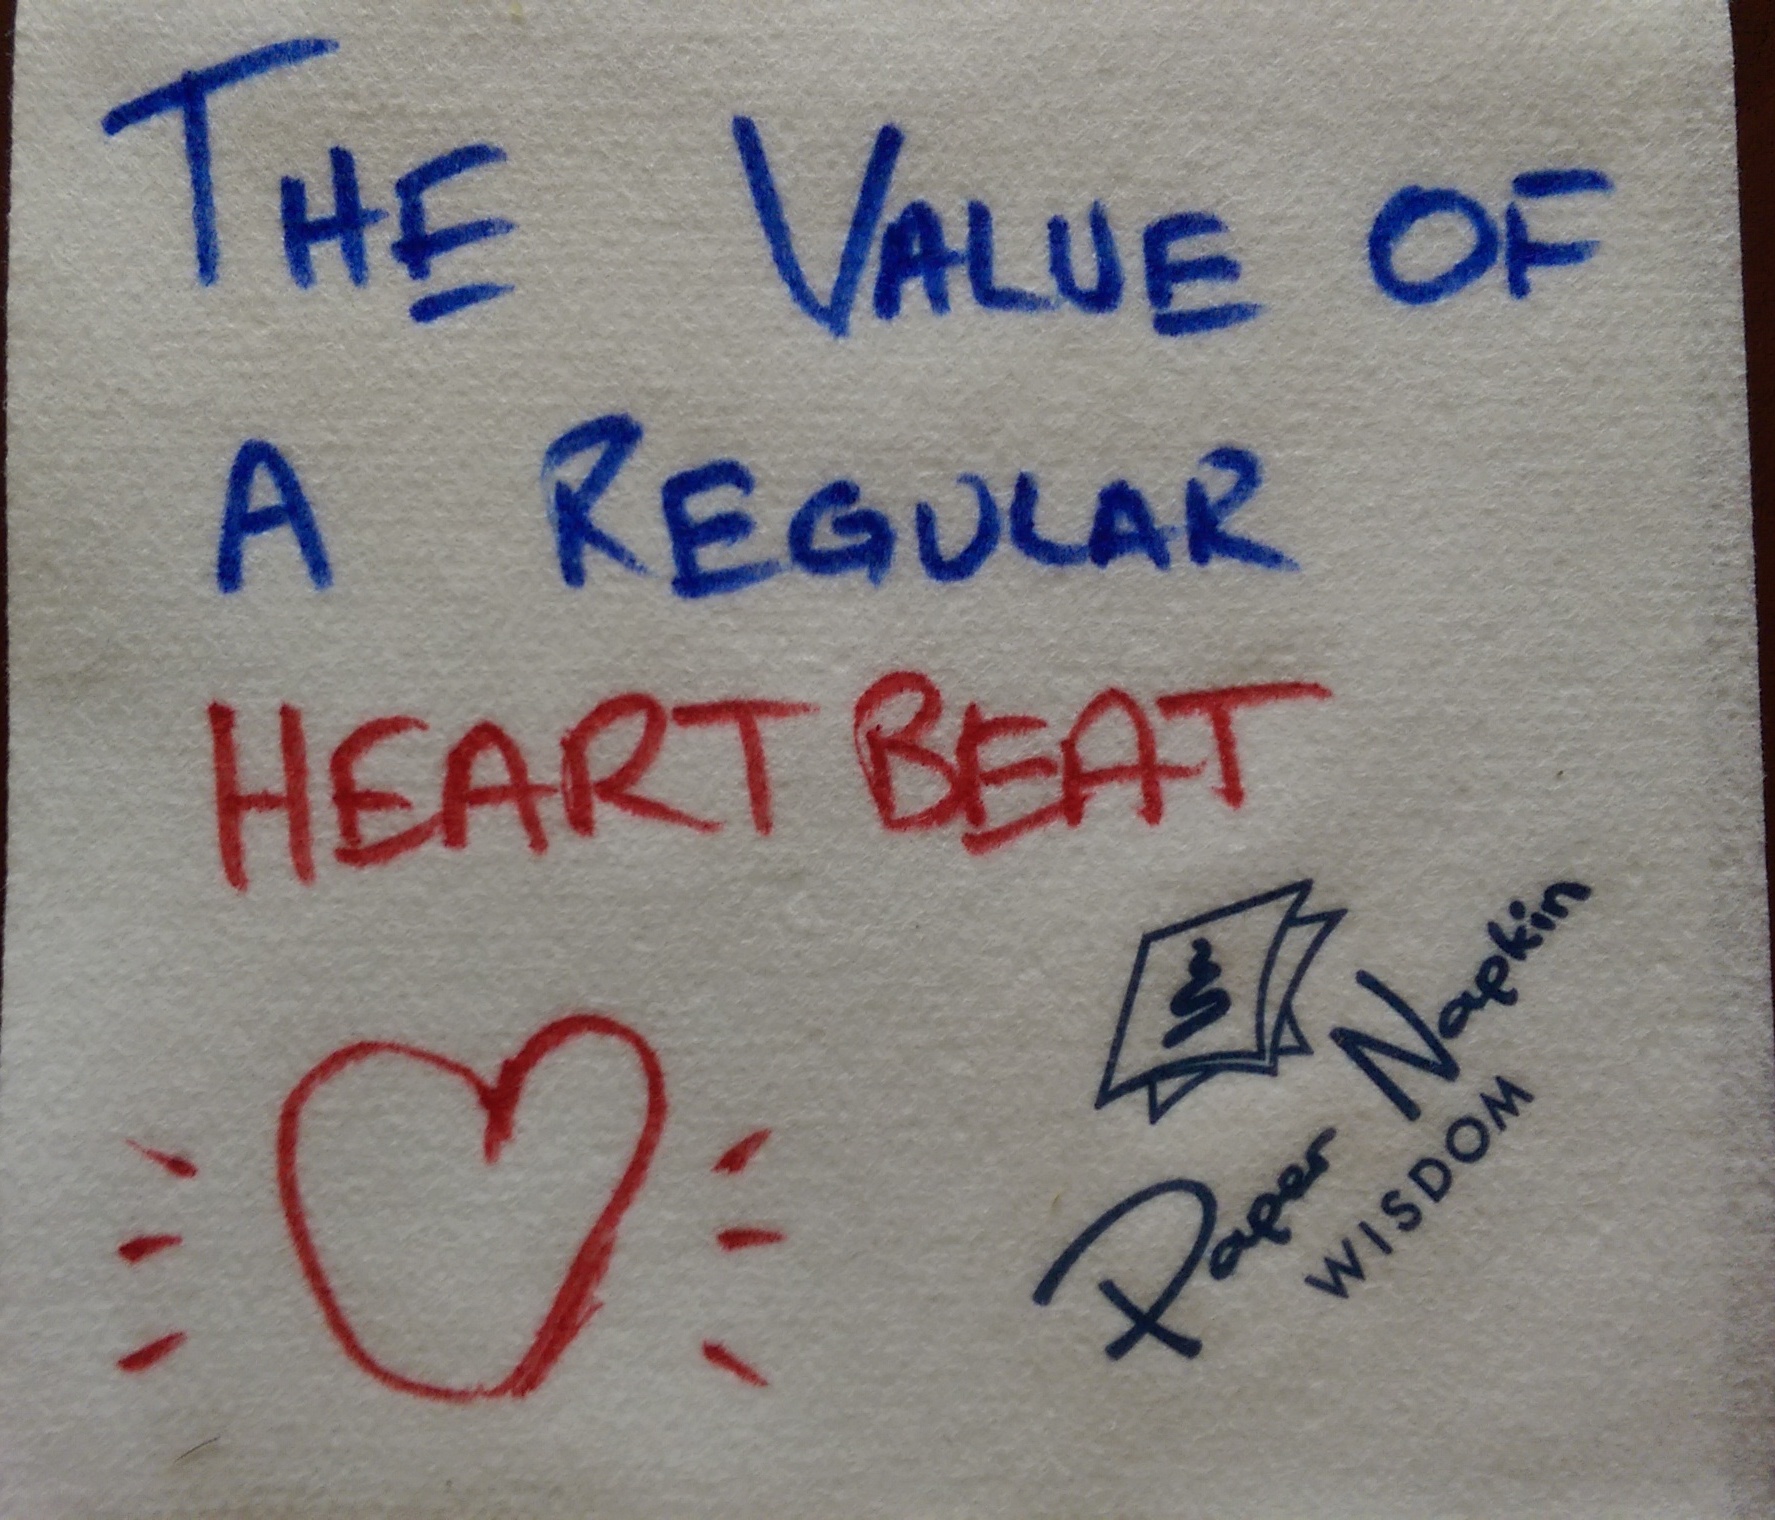 THE VALUE OF
A REGULAR
HEARTBEAT
Paper Napkin
WISDOM